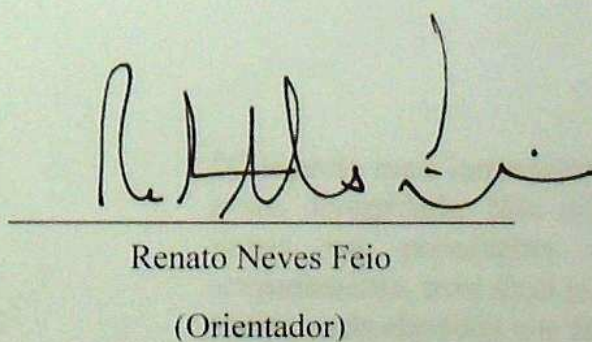 Renato Neves Feio
(Orientador)